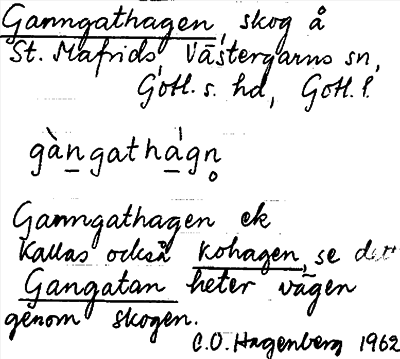 Ganngathagen, skog å
St. Mafrids Västergarns sn,
Gotl. s. hd, Gotl. l.
gàngathàgn̥
Ganngathagen ek
Kallas också kohagen, se det
Gangatan heter vägen
genom skogen.
C.O. Hagenberg 1962